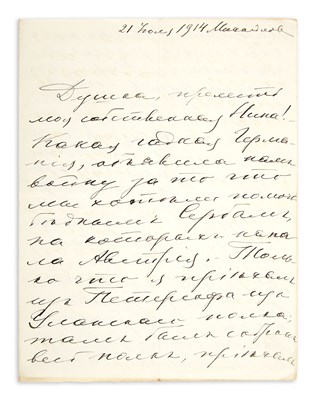 21 Іюля 1914 Михайловка
Душка, прелесть
моя собственная Нина!-
Какая гадкая Герма-
нія, объявила намъ
войну за то что
мы хотѣли помочь
бѣднымъ Сербамъ,
на которыхъ напа-
ла Австрія. Толь-
ко что я пріѣхалъ
изъ Петергофа изъ
Уланскаго полка,
тамъ былъ собранъ
весь полкъ, пріѣхала